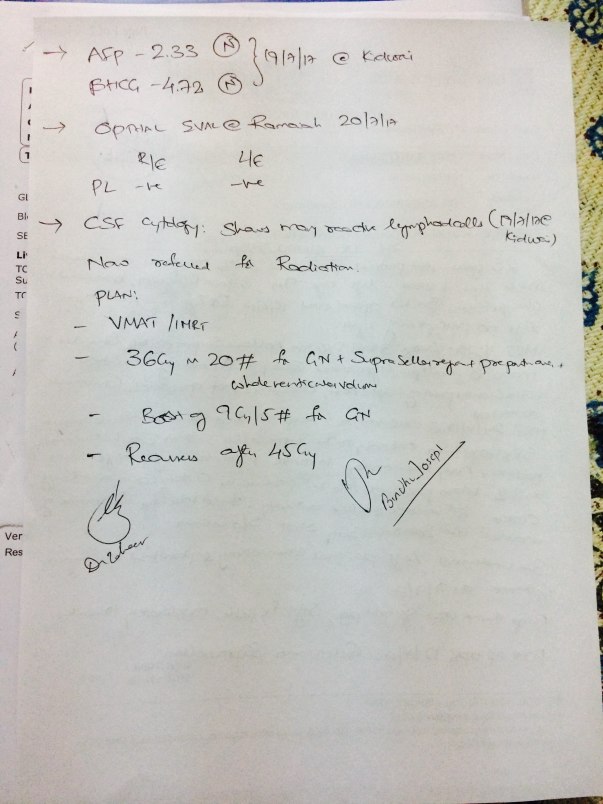 → AFP - 2.33 (N) } 19/7/17 @ Kidwai
BHCG - 4.72 (N)
→ OPTHAL EVAL @ Ramaiah 20/7/17
R/E L/E
PL -ve -ve
→ CSF cytology: Shows many reactive lymphoid cells (19/7/17 @ Kidwai)
Now referred for Radiation.
PLAN:
- VMAT / IMRT
- 36Gy in 20 # for GN + Suprasellar region + +
whole ventricular volume
- Boost of 9Gy/5 # for GN
- Reassess after 45Gy
Bindhu Joseph
Dr Zaheer
GL
Bl
SE
Li
TC
Su
TC
Ver
Res